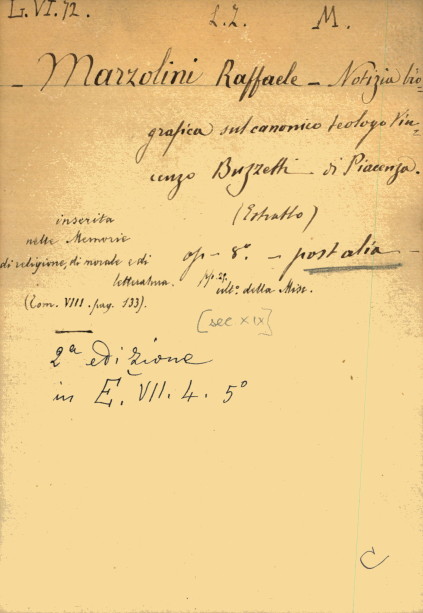 L. VI. 72. L. Z. M.
Marzolini Raffaele - Notizia bio-
grafica sul canonico teologo Vin-
cenzo Buzzetti di Piacenza.
(Estratto)
inserita
nelle Memorie
di religione, di morale e di
letteratura.
(Tom. VIII. pag. 133).
op - 8º. - post alia -
ult.º della Misc.
[sec XIX]
2ª edizione
in E. VII. 4. 5º
C